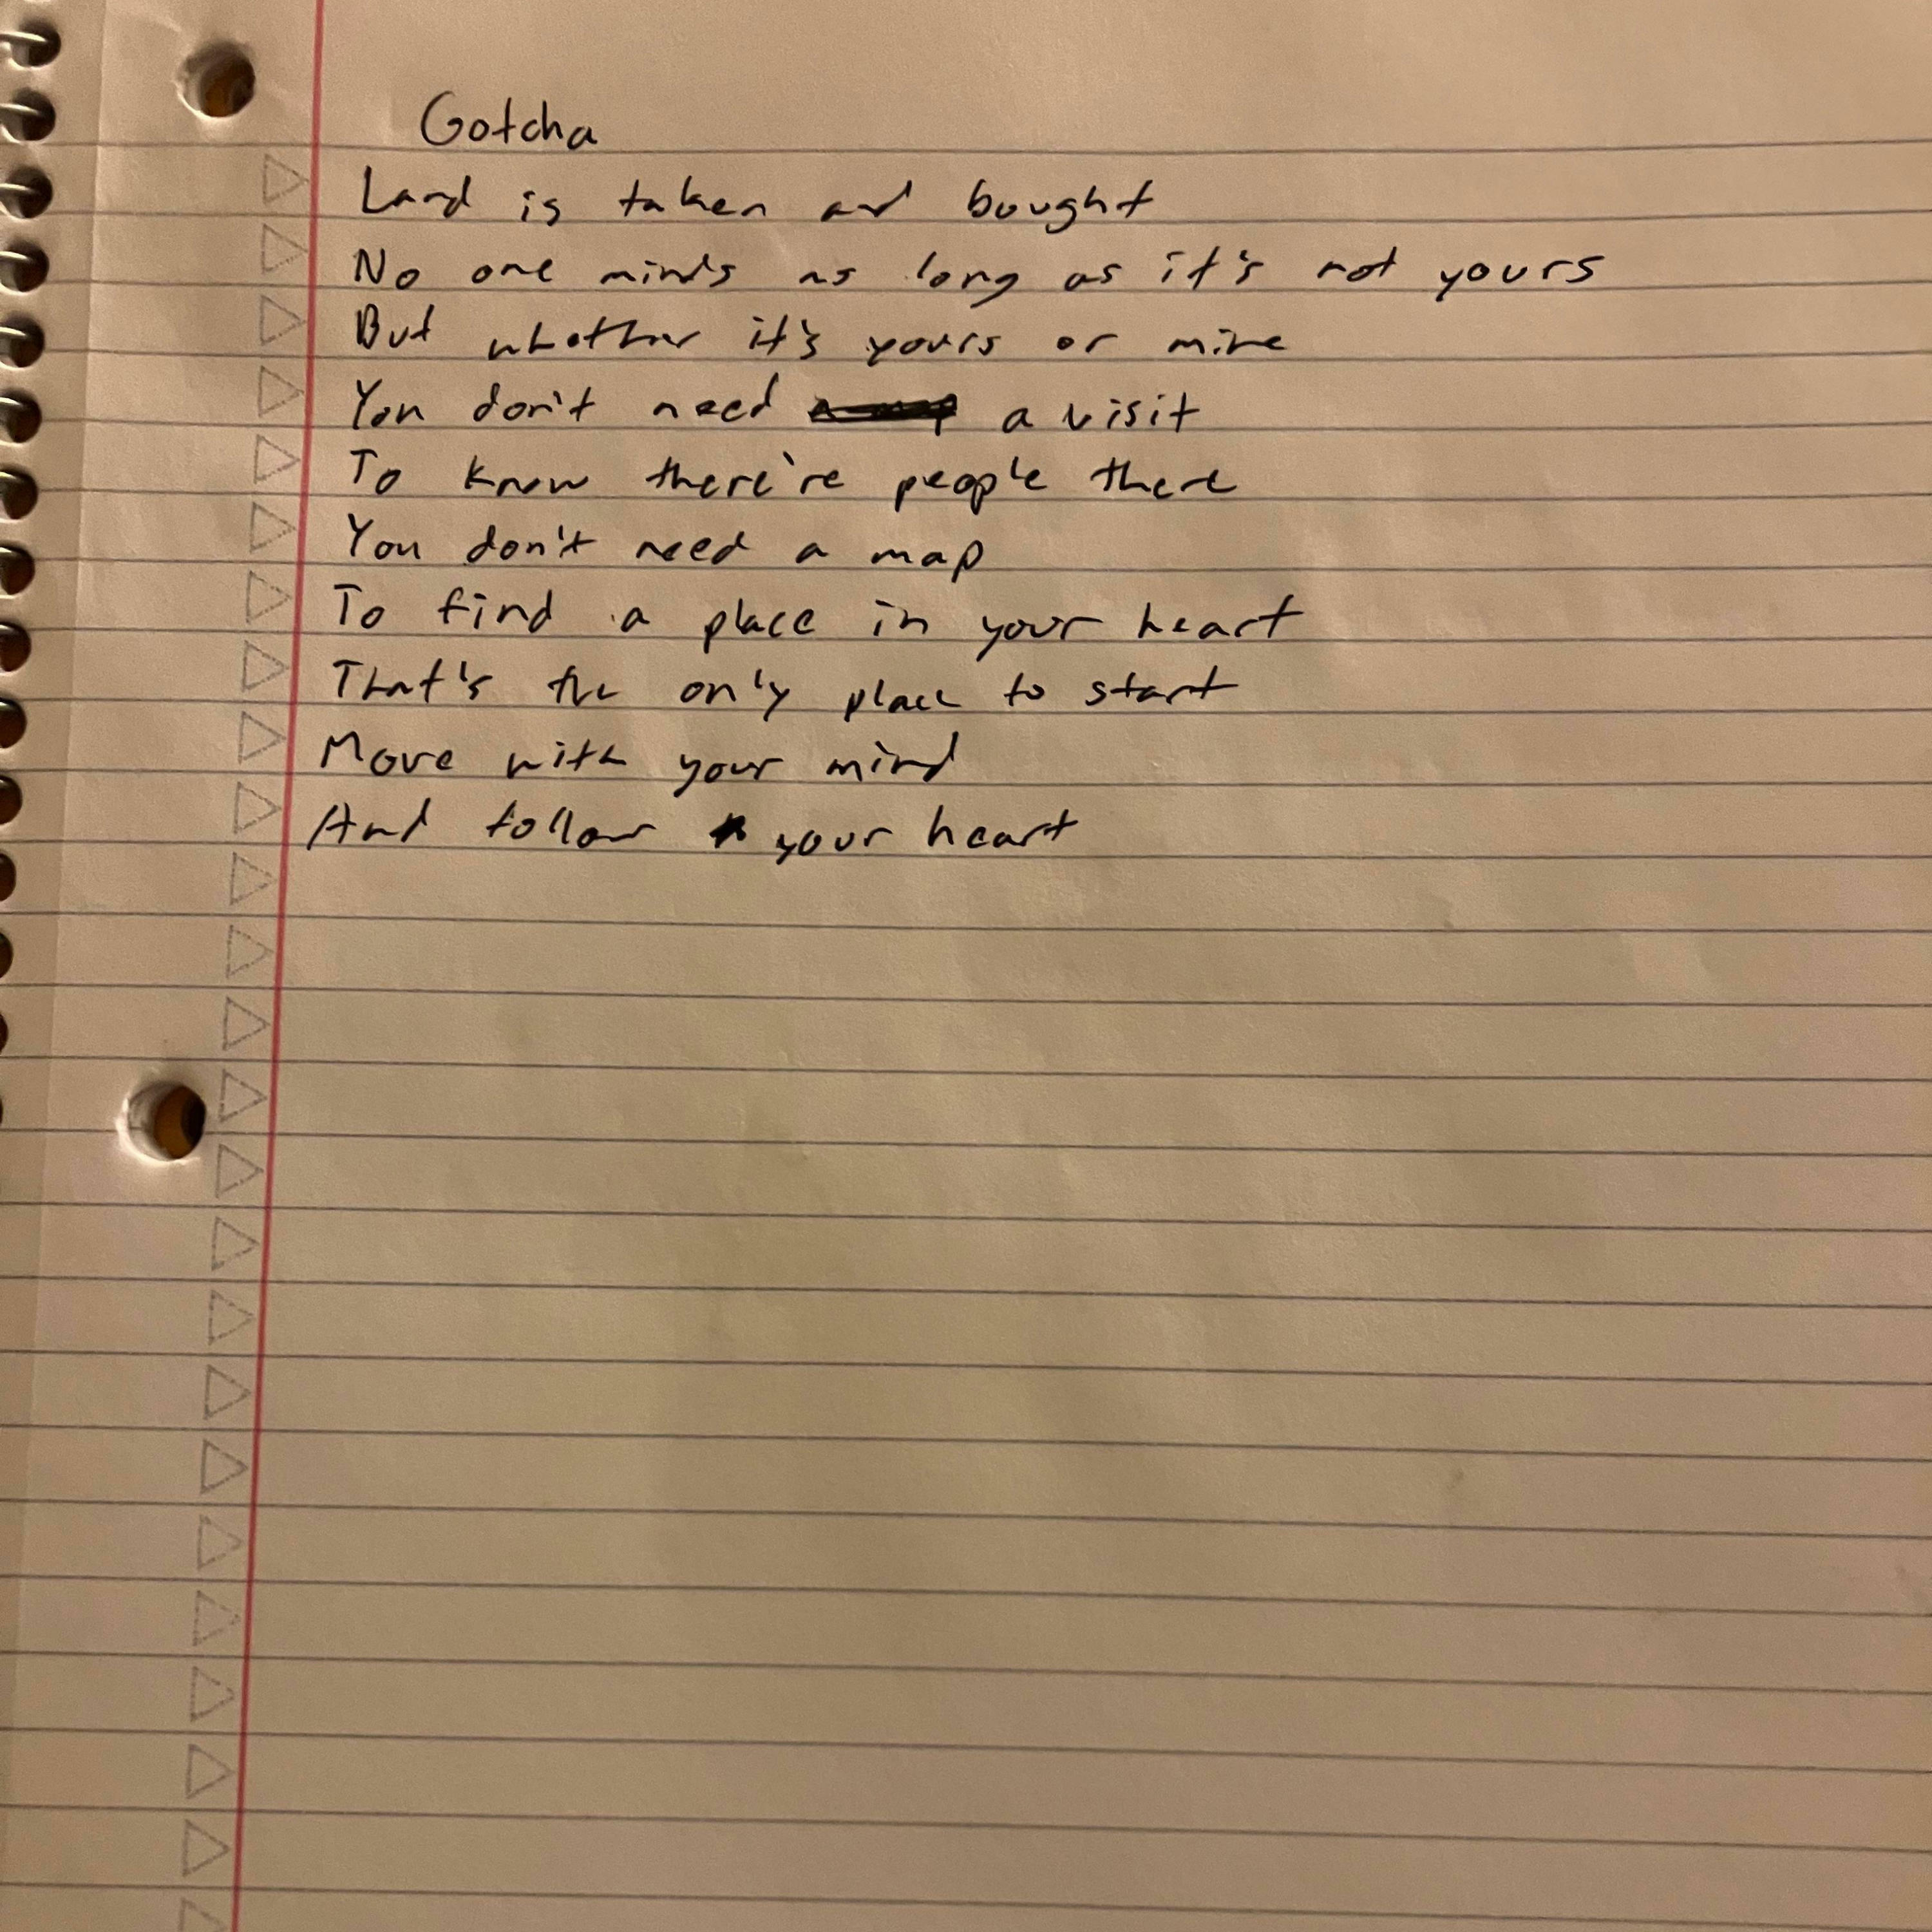 Gotcha
Land is taken and bought
No one minds as long as it's not yours
But whether it's yours or mine
You don't need a visit
To know there're people there
You don't need a map
To find a place in your heart
That's the only place to start
Move with your mind
And follow your heart